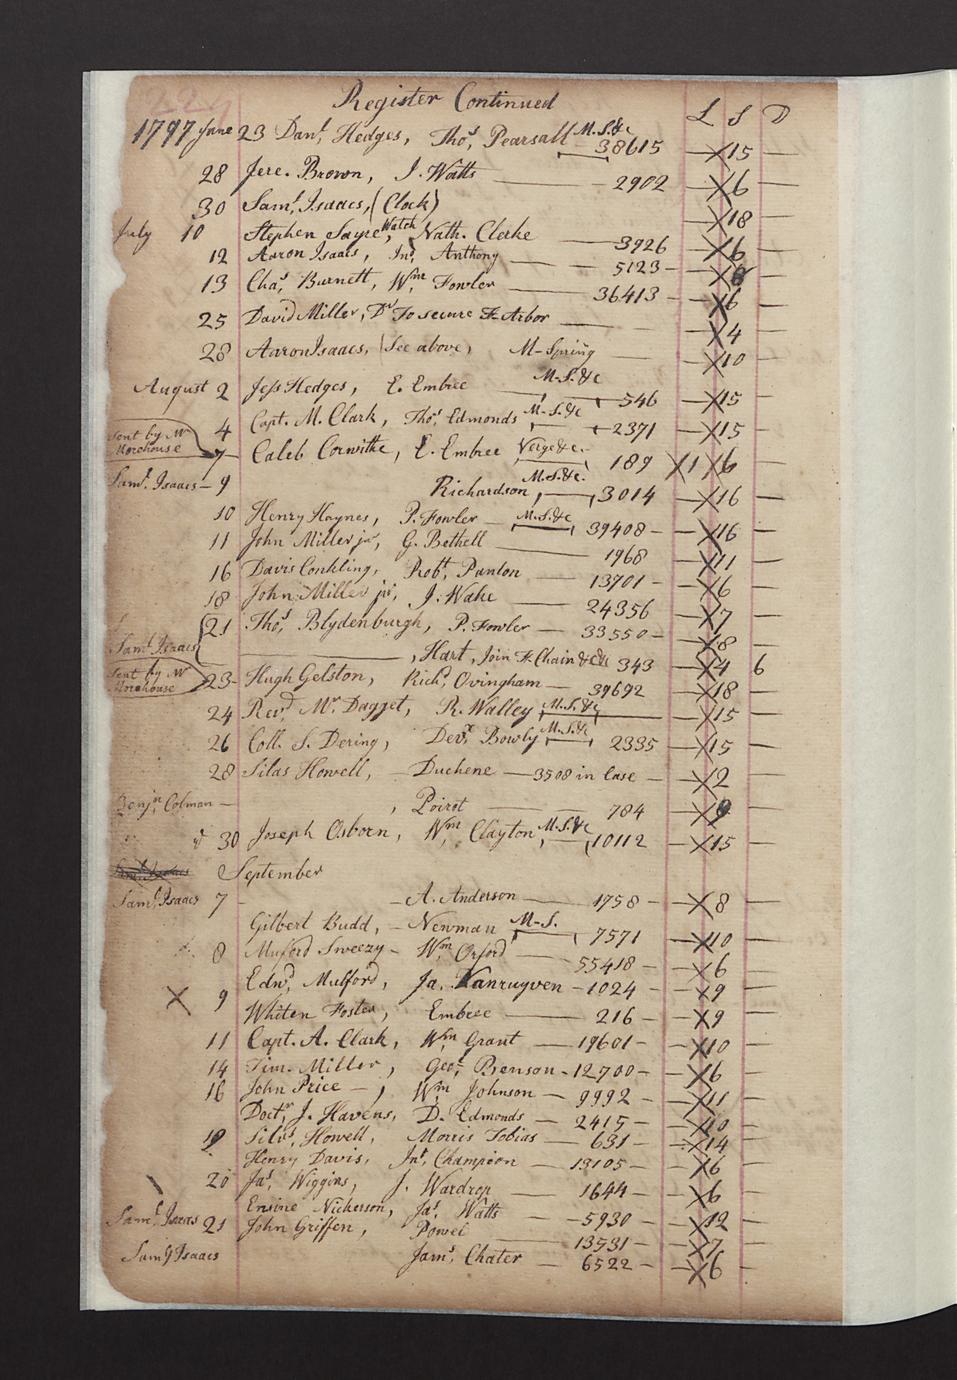 229
Register Continued
L S D
1797 June 23 Danl. Hedges, Thos. Pearsall M.S.&c 38615 — X 15 —
28 Jere. Brown, J. Watts — 2902 — X 6 —
30 Saml. Isaacs, (Clock) — X 18 —
July 10 Stephen Sayre, Watch Nath. Clerke — 3926 — X 6 —
12 Aaron Isaacs, Jno. Anthony — 5123 — X 8 —
13 Chas. Burnett, Wm. Fowler — 36413 — X 6 —
25 David Miller, Do. To secure F. Arbor — X 4 —
28 Aaron Isaacs, (See above, M-Spring — X 10 —
August 2 Jess Hedges, E. Embree M-S.&c 546 — X 15 —
4 Capt. M. Clark, Thos. Edmonds M-S.&c 2371 — X 15 —
Sent by Mr Morehouse 7 Caleb Corwithe, E. Embree Verge&c. 189 X 1 X 6 —
Saml. Isaacs — 9 Richardson, M.S.&c. 3014 — X 16 —
10 Henry Haynes, P. Fowler — M.S.&c 39408 — X 16 —
11 John Miller jr, G. Bethell — 1968 — X 11 —
16 Davis Conkling, Robt. Panton — 13701 — X 6 —
18 John Miller jr, J. Wake — 24356 — X 7 —
21 Thos. Blydenburgh, P. Fowler — 33550 — X 8 —
Saml. Isaacs — , Hart, Join F. Chain &c 343 — X 4 6
Sent by Mr Morehouse 23 Hugh Gelston, Richd. Ovingham — 39692 — X 18 —
24 Revd. Mr. Dagget, R. Walley M.S.&c — X 15 —
26 Coll. S. Dering, Devx. Bowly M-S.&c 2335 — X 15 —
28 Silas Howell, — Duchene — 3508 in Case — X 2 —
Benjn. Colman — , Poirot — 784 — X 9 —
30 Joseph Osborn, Wm. Clayton, M-S.&c 10112 — X 15 —
September
Saml. Isaacs 7 — A. Anderson — 1758 — X 8 —
Gilbert Budd, — Newman M-S. 7571 — X 10 —
8 Muford Sweezy — Wm. Orford — 55418 — X 6 —
Edwd. Mulford, Ja. Vanruyven — 1024 — X 9 —
X 9 Whiten Foster, Embree — 216 — X 9 —
11 Capt. A. Clark, Wm. Grant — 19601 — X 10 —
14 Tim. Miller, Geo. Benson — 12700 — X 6 —
16 John Price —, Wm. Johnson — 9992 — X 11 —
Doctr. J. Havens, D. Edmonds — 2415 — X 10 —
19 Silvs. Howell, Morris Tobias — 631 — X 14 —
Henry Davis, Jno. Champion — 13105 — X 6 —
20 Jas. Wiggins, J. Wardrop — 1644 — X 6 —
Ensine Nickerson, Jas. Watts — 5930 — X 12 —
Saml. Isaacs 21 John Griffen, Powel — 13531 — X 7 —
Saml. Isaacs Jams. Chater — 6522 — X 6 —